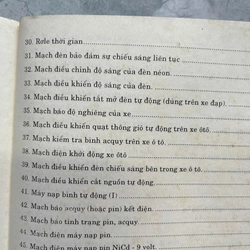 30. Rơle thời gian
31. Mạch đèn bảo đảm sự chiếu sáng liên tục
32. Mạch điều chỉnh độ sáng của đèn nêon.
33. Mạch điều khiển độ sáng của đèn.
34. Mạch điều khiển tắt mở đèn tự động (dùng trên xe đạp).
35. Mạch báo độ nghiêng của xe
36. Mạch điều khiển quạt thông gió tự động trên xe ôtô.
37. Mạch kiểm tra bình acquy trên xe ô tô.
38. Mạch điện khởi động xe ôtô
39. Mạch điều khiển đèn chiếu sáng bên trong xe ô tô.
40. Mạch điều khiển cắt nguồn tự động.
41. Máy nạp bình tự động (I)
42. Mạch báo acquy (hoặc pin) kết điện.
43. Mạch báo tình trạng pin, acquy
44. Mạch điện máy nạp pin
45. Mạch điện máy nạp pin NiCd - 9 volt.